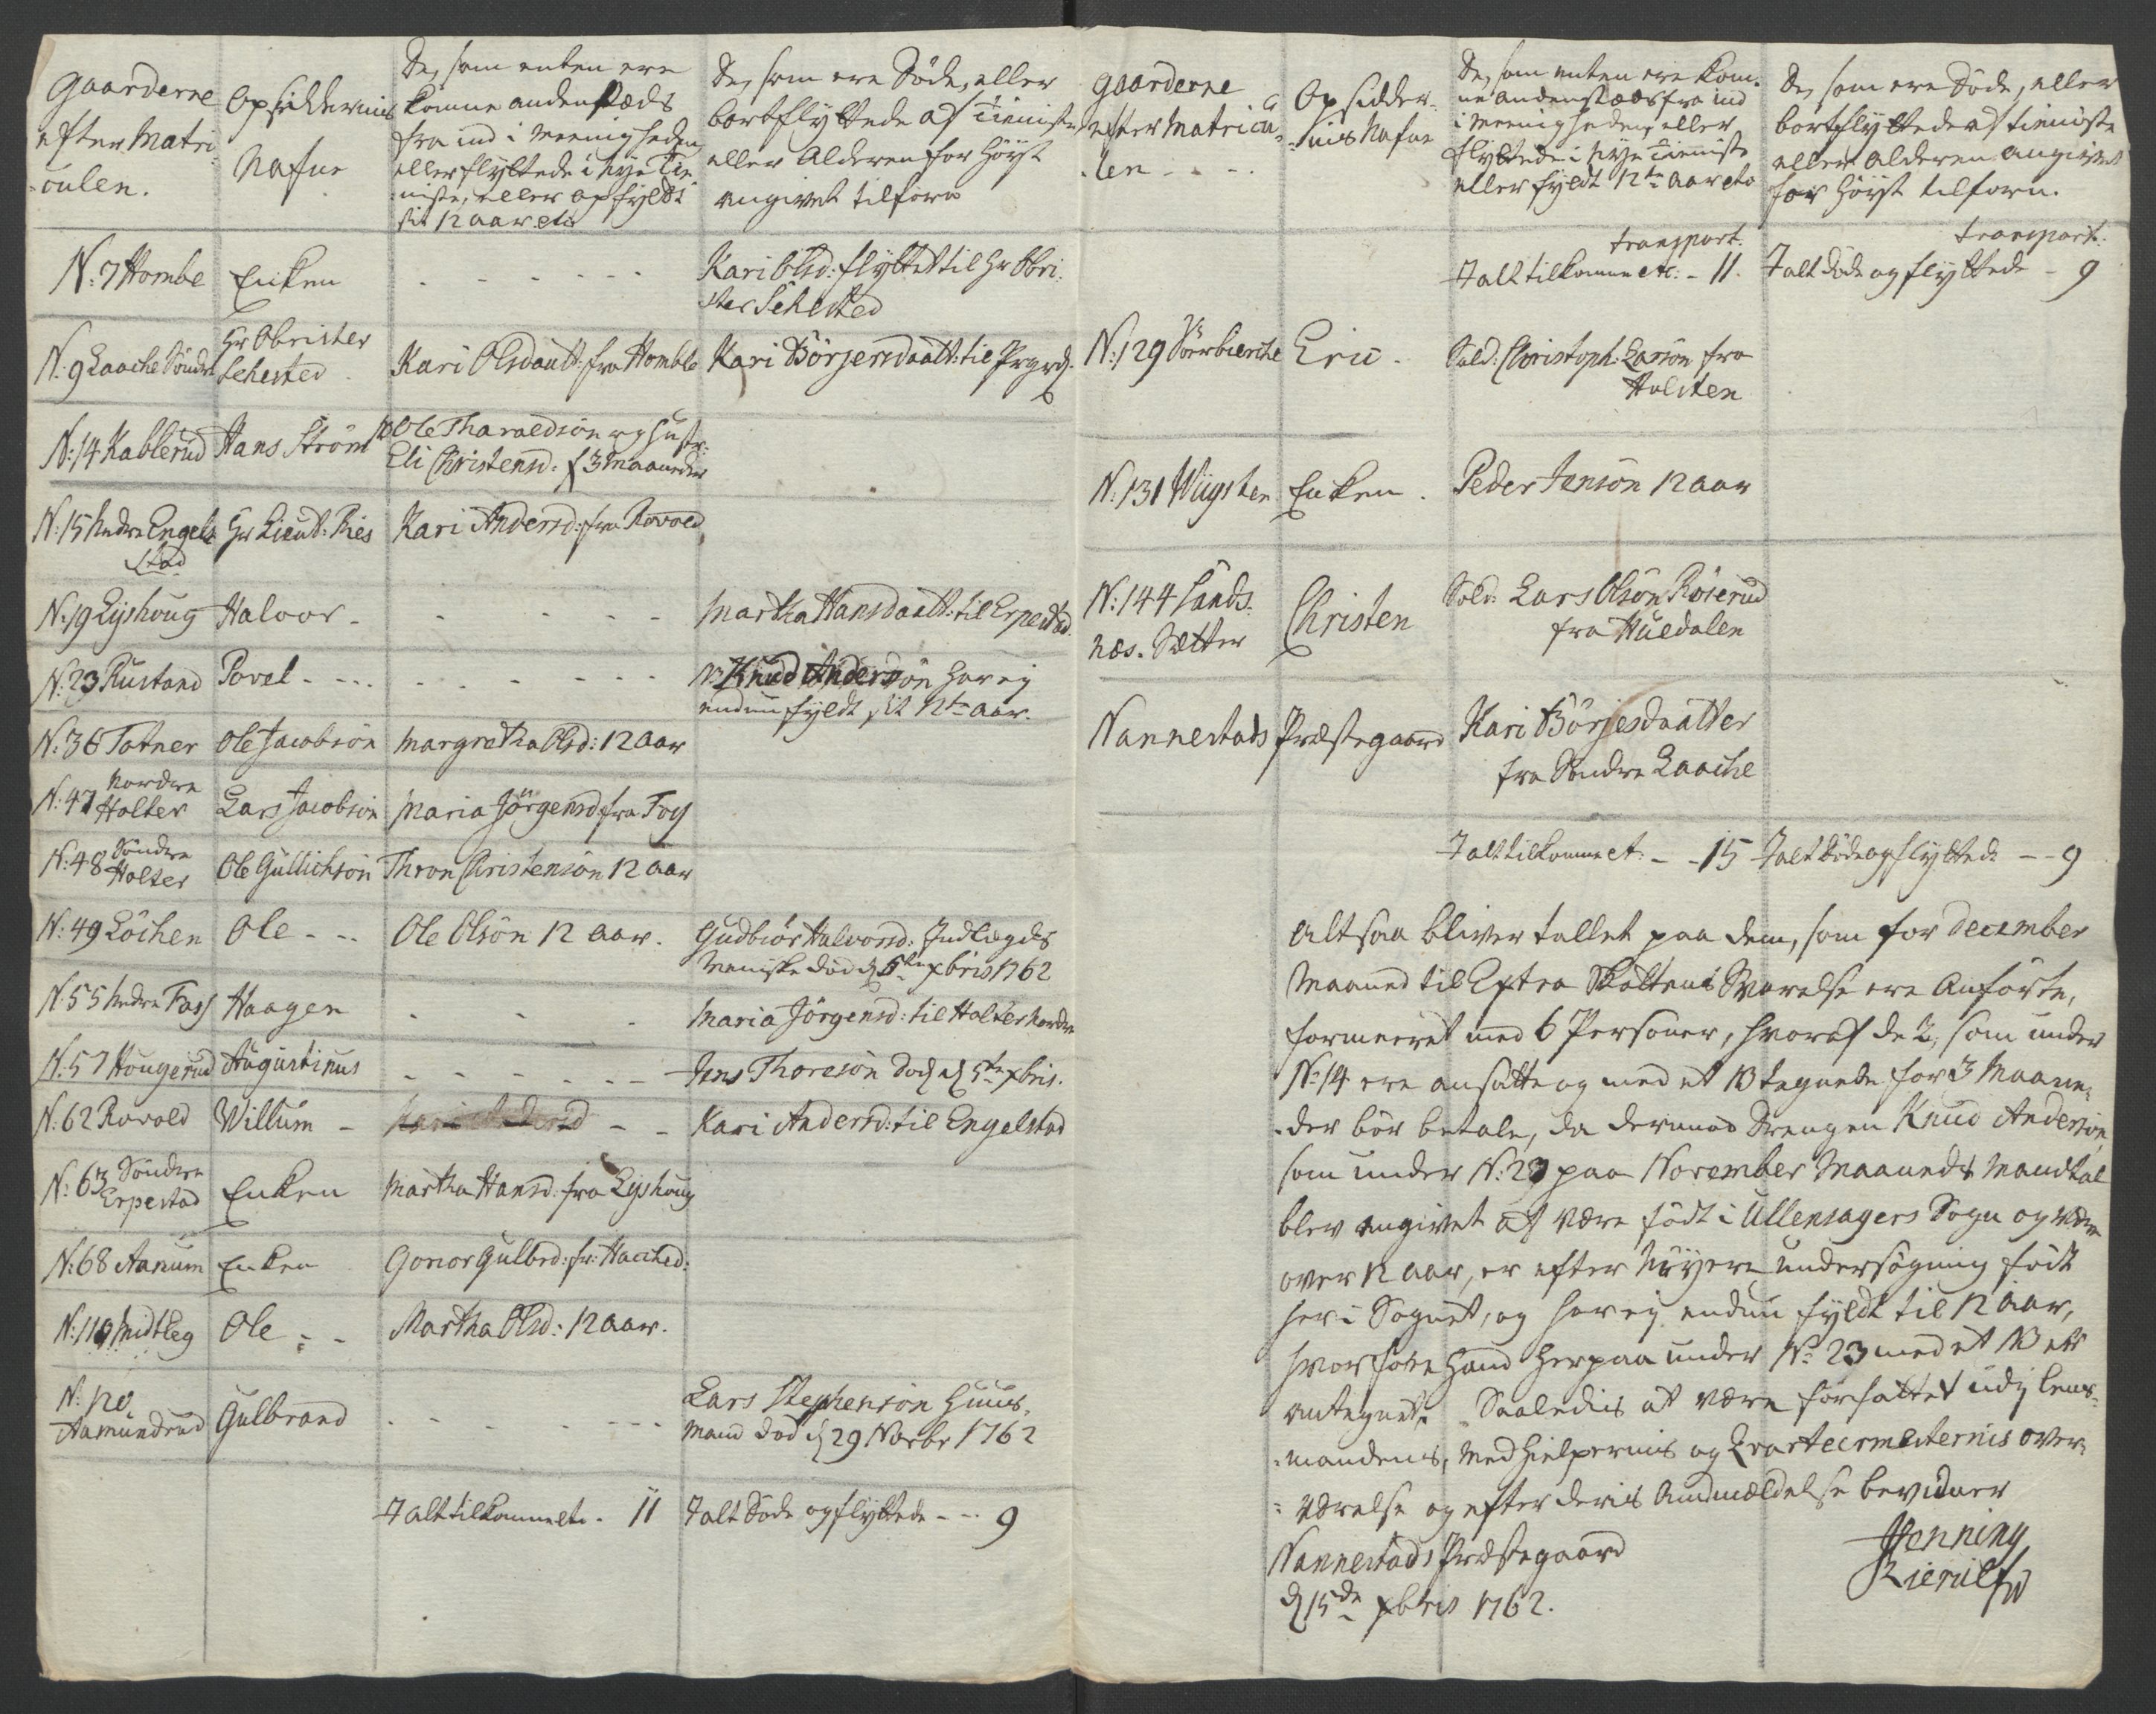 Gaarderne
efter Matri-
culen.
Opsiddernis
Nafne
De, som enten ere
komne andenstæds
fra ind i Meenigheden,
eller flyttede i nye Tie-
niste, eller opfyldt
sit 12 aar etc
De, som ere Døde, eller
bortflyttede af Tieniste
eller Alderen for høyt
angivet tilforn
N: 7 Homble Enken - - - - - Kari Olsd: flyttet til Hr Obri-
ster Sehested
N: 9 Laache Søndre Hr Obrister
Sehested Kari Olsdaatt: fra Homble Kari Börjersdaatt: til Prgrd.
N: 14 Kablerud Hans Ström NB Ole Tharaldsön og Hustr:
Eli Christensd: f 3 Maaneder
N: 15 Nedre Engel-
stad Hr Lieut: Ries Kari Andersd: fra Rovold
N: 19 Lyshoug Halvor - - - - - Martha Hansdaatt: til Erpestad
N: 23 Rustand Povel - - - - - - - - NB Knud Andersön har ej
endnu fyldt sit 12te aar.
N: 36 Totner Ole Jacobsön Margretha Olsd: 12 aar
N: 47 Nordre
Holter Lars Jacobsön Maria Jörgensd fra Foss
N: 48 Söndre
Holter Ole Gullichsön Thron Christensön 12 aar
N: 49 Löchen Ole - - - Ole Olsön 12 aar. Gudbiör Halvorsd: Indlægds
Menniske død d 5te xbris 1762
N: 55 Nedre Foss Haagen - - - Maria Jörgensd: til Holter Nordre
N: 57 Hougerud Augustinus - - - - - - Jens Thoresön död d 5te xbris.
N: 62 Rovold Willum - Kari Andersd - - Kari Andersd: til Engelstad
N: 63 Söndre
Erpestad Enken Martha Hansd: fra Lyshoug
N: 68 Aanum Enken Gonor Gulbrd: fr: Hached:
N: 110 Midtleg Ole - - Martha Olsd: 12 aar.
N: 120
Aamundrud Gulbrand - - - - - - Lars Stephensön Huus-
mand död d 29 Novbr 1762
I alt tilkomne etc - 11 I alt Døde og flyttede - - - 9
Gaarderne
efter Matricu-
len - - -
Opsidder-
nis Nafne
De, som enten ere kom-
ne andenstæds fra ind
i Meenigheden, eller
flyttede i nye Tieniste
eller fyldt 12te aar etc
De, som ere Døde, eller
bortflyttede af tieniste
eller alderen angivet
for høyt tilforn.
Transport.
I alt tilkomne etc: - 11.
Transport.
I alt døde og flyttede - 9
N: 129 Sörbierche Eric - Sold: Christoph: Larsön fra
Holsten
N: 131 Wiigsten Enken - Peder Jensön 12 aar
N: 144 Sands-
næs-Sætter Christen Sold: Lars Olsön Röierud
fra Huedalen
Nannestads Præstegaard Kari Börjesdaatter
fra Søndre Laache
I alt tilkomne et: - - 15 I alt Døde og flyttede - - 9
Altsaa bliver tallet paa dem, som for December
Maaned til Extra Skattens Svarelse ere Anförte,
formeeret med 6 Personer, hvoraf de 2, som under
N: 14 ere ansatte og med et NB tegnede for 3 Maane-
der bör betale, da derimod Drengen Knud Andersön,
som under N: 23 paa November Maaneds Mandtal
blev angivet at være födt i Ullensagers Sogn og være
over 12 aar, er efter nöyere undersögning födt
her i Sognet, og har ej endnu fyldt til 12 aar,
hvorfore hand herpaa under N: 23 med et NB er
antegnet. Saaledis at være forfattet udj Lens-
mandens, Medhielpernis og Qvarteermesternis over-
værelse og efter deris Anmældelse bevidner
Nannestads Præstegaard
d 15de xbris 1762.
Henning
Kierulf